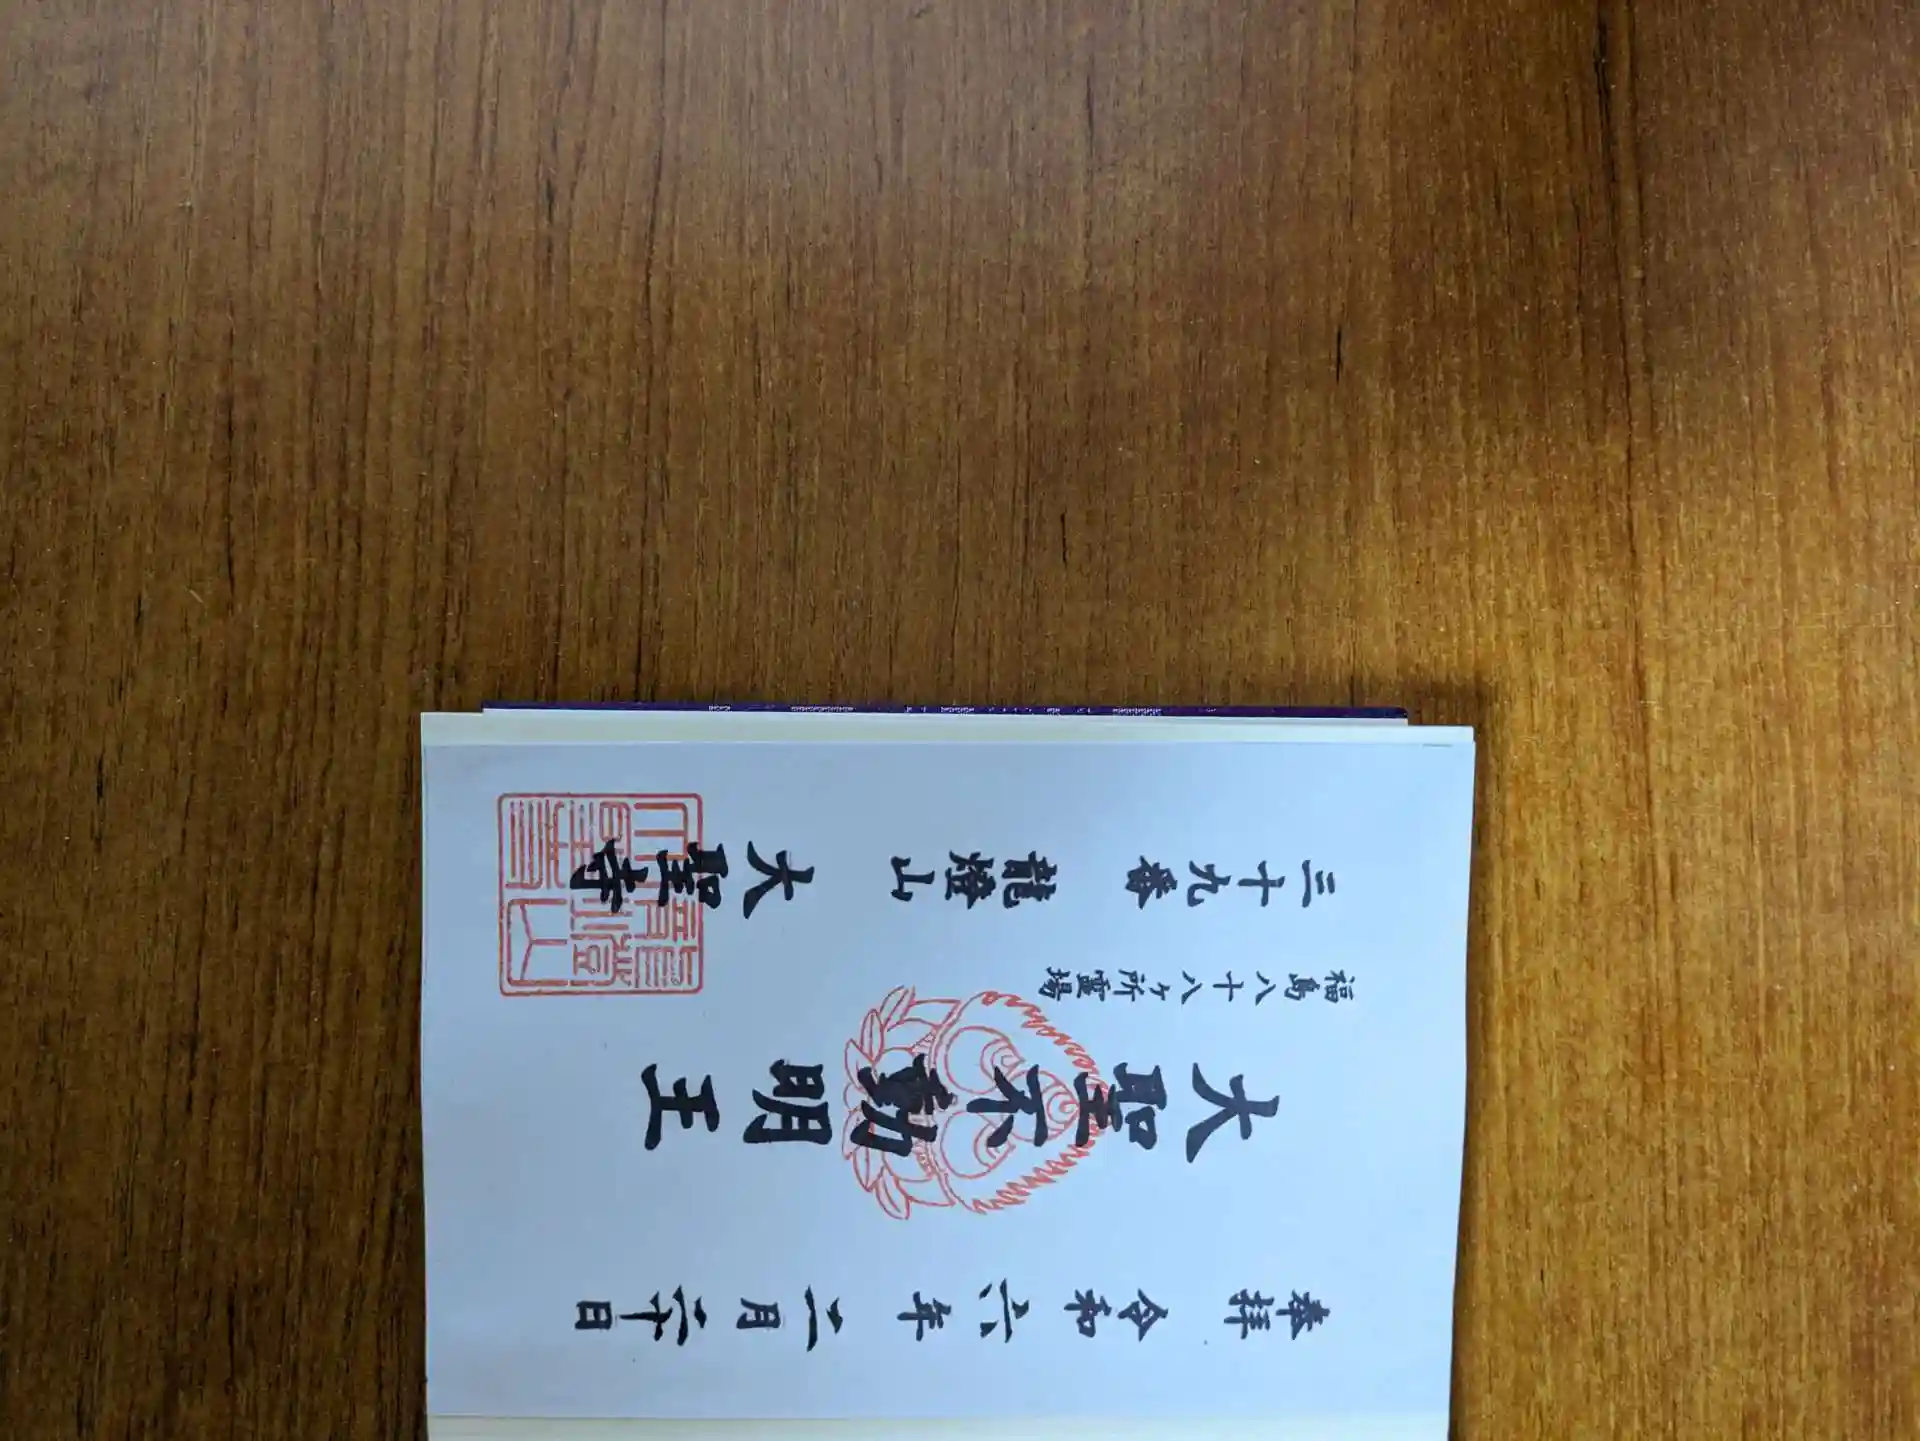 奉拝　令和六年二月二十日
大聖不動明王
福島八十八ヶ所霊場
三十九番　龍燈山　大聖寺